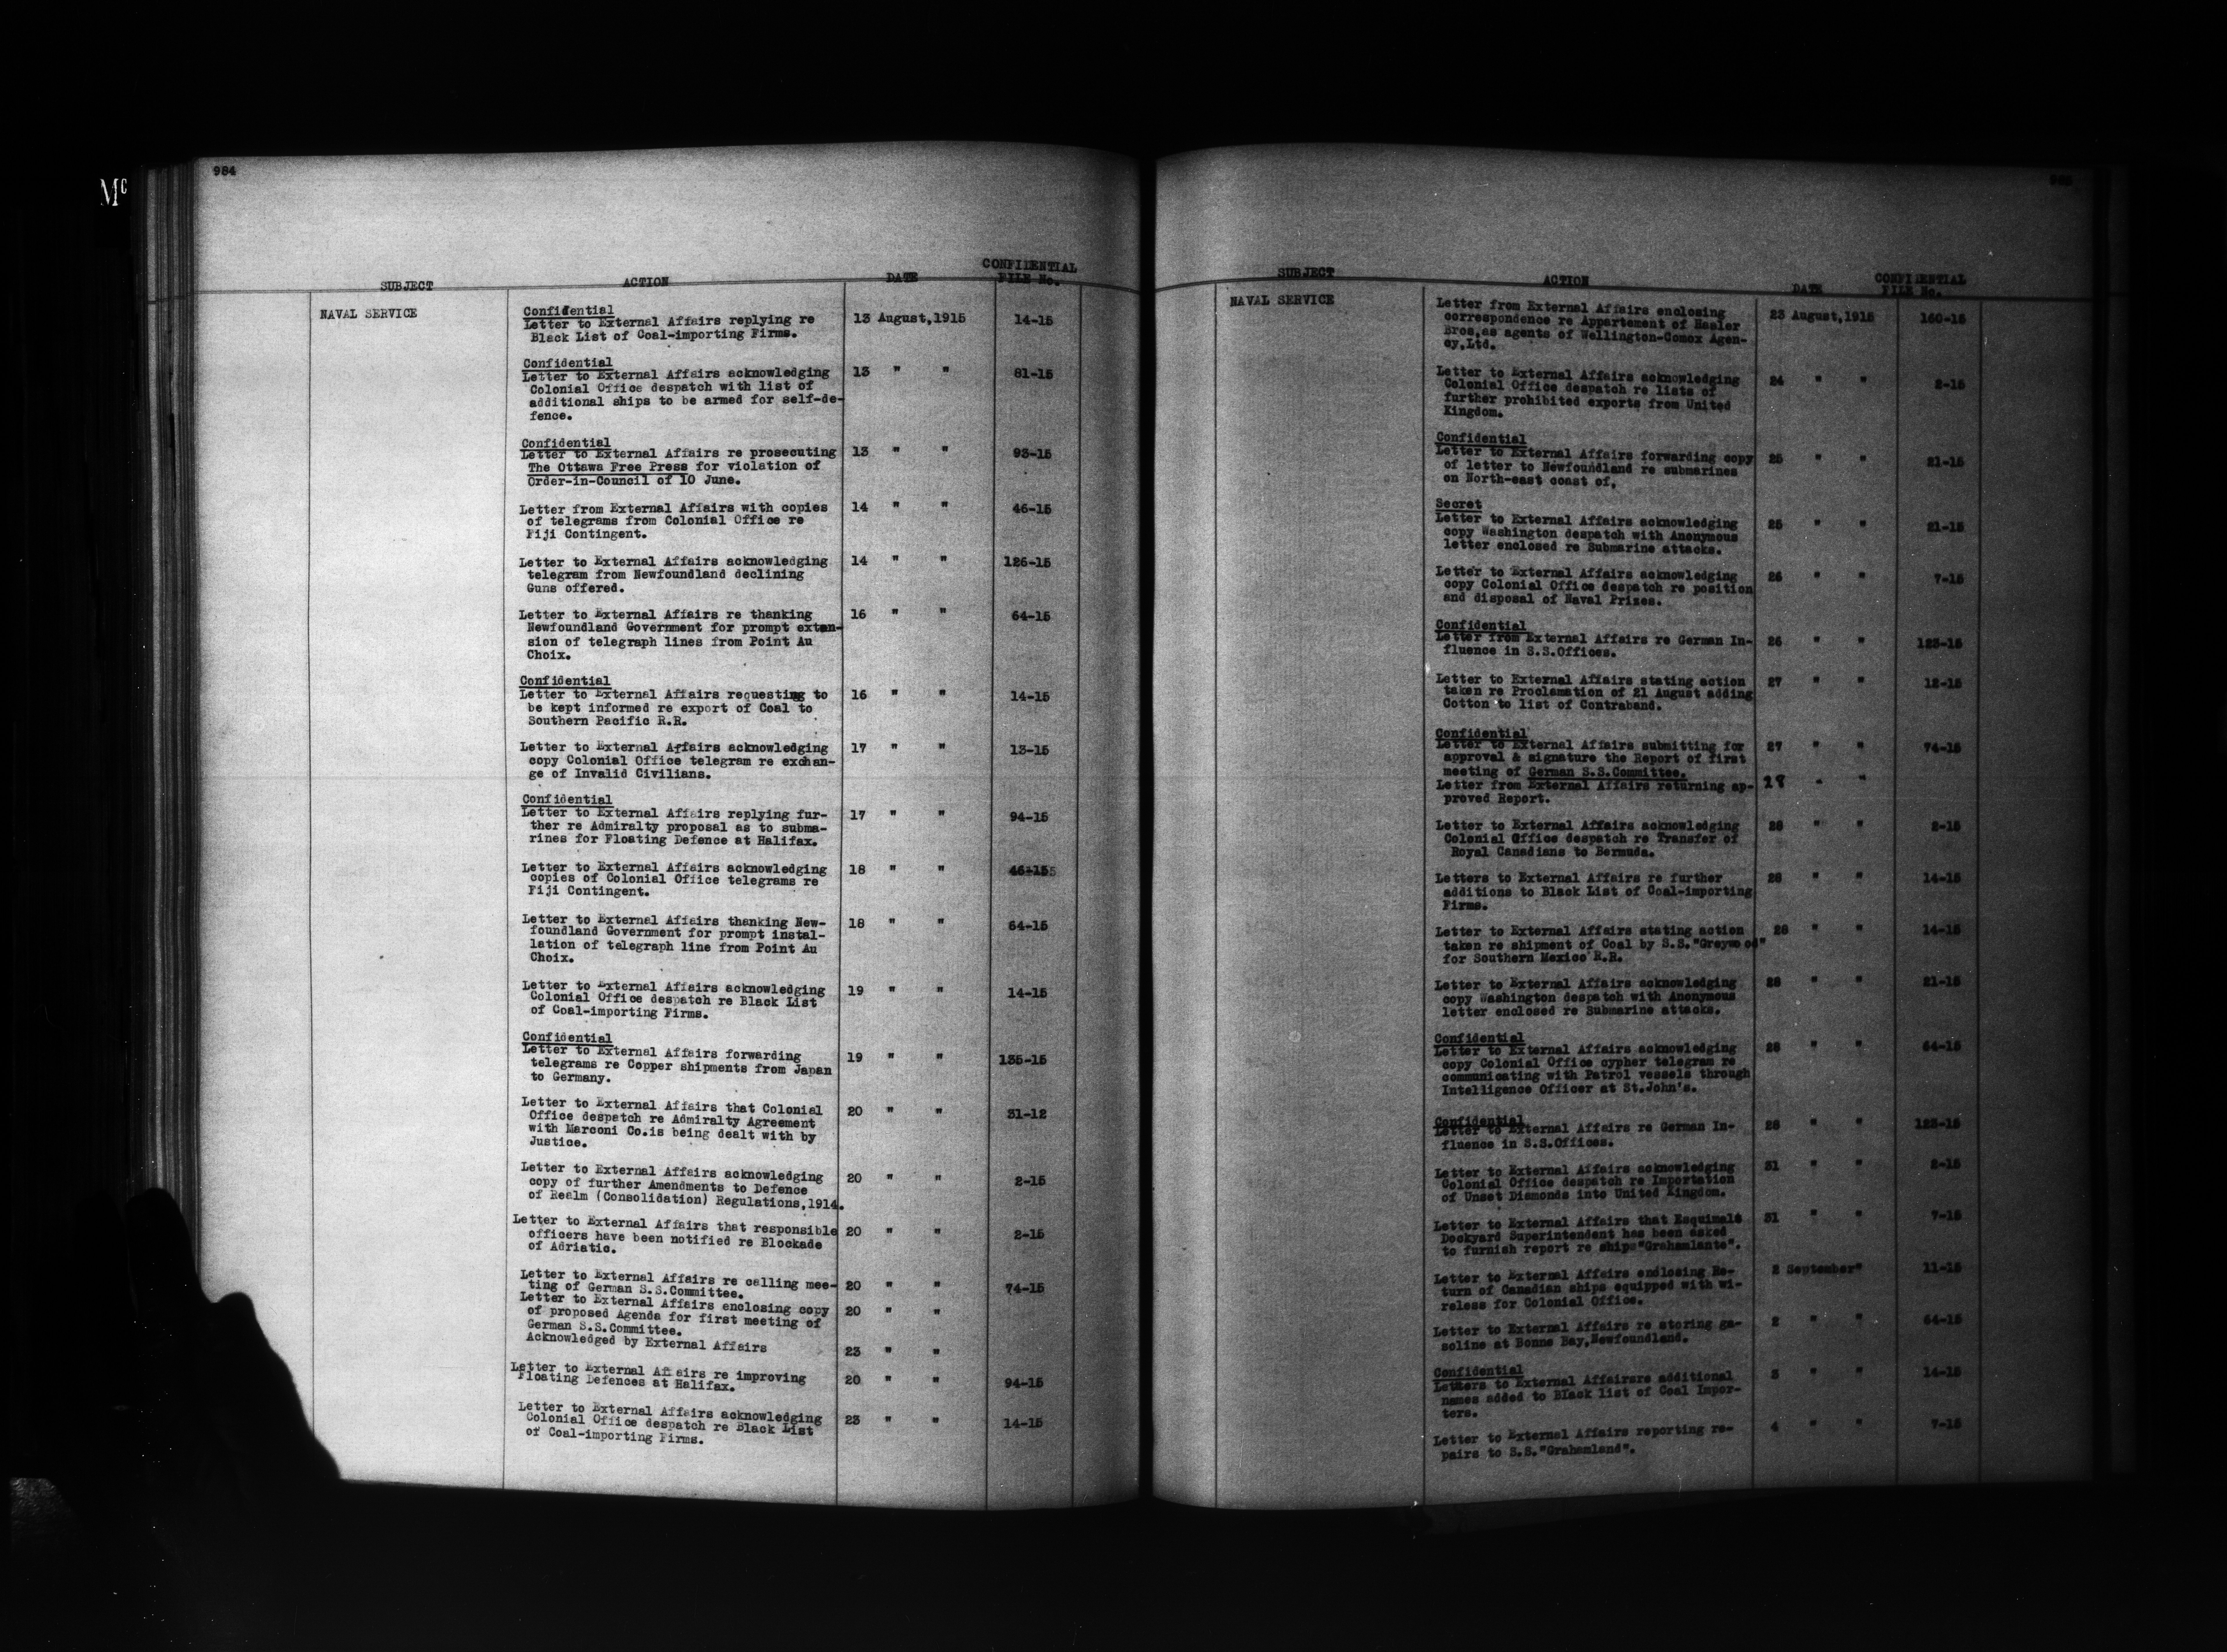 Mc
984
SUBJECT ACTION DATE CONFIDENTIAL FILE No.
NAVAL SERVICE
Confidential
Letter to External Affairs replying re 13 August,1915 14-15
Black List of Coal-importing Firms.
Confidential
Letter to External Affairs acknowledging 13 " " 81-15
Colonial Office despatch with list of
additional ships to be armed for self-de-
fence.
Confidential
Letter to External Affairs re prosecuting 13 " " 93-15
The Ottawa Free Press for violation of
Order-in-Council of 10 June.
Letter from External Affairs with copies 14 " " 46-15
of telegrams from Colonial Office re
Fiji Contingent.
Letter to External Affairs acknowledging 14 " " 126-15
telegram from Newfoundland declining
Guns offered.
Letter to External Affairs re thanking 16 " " 64-15
Newfoundland Government for prompt exten-
sion of telegraph lines from Point Au
Choix.
Confidential
Letter to External Affairs requesting to 16 " " 14-15
be kept informed re export of Coal to
Southern Pacific R.R.
Letter to External Affairs acknowledging 17 " " 13-15
copy Colonial Office telegram re exchan-
ge of Invalid Civilians.
Confidential
Letter to External Affairs replying fur- 17 " " 94-15
ther re Admiralty proposal as to subma-
rines for Floating Defence at Halifax.
Letter to External Affairs acknowledging 18 " " 46-155
copies of Colonial Office telegrams re
Fiji Contingent.
Letter to External Affairs thanking New- 18 " " 64-15
foundland Government for prompt instal-
lation of telegraph line from Point Au
Choix.
Letter to External Affairs acknowledging 19 " " 14-15
Colonial Office despatch re Black List
of Coal-importing Firms.
Confidential
Letter to External Affairs forwarding 19 " " 135-15
telegrams re Copper shipments from Japan
to Germany.
Letter to External Affairs that Colonial 20 " " 31-12
Office despatch re Admiralty Agreement
with Marconi Co.is being dealt with by
Justice.
Letter to External Affairs acknowledging 20 " " 2-15
copy of further Amendments to Defence
of Realm (Consolidation) Regulations,1914.
Letter to External Affairs that responsible 20 " " 2-15
officers have been notified re Blockade
of Adriatic.
Letter to External Affairs re calling mee- 20 " " 74-15
ting of German S.S.Committee.
Letter to External Affairs enclosing copy 20 " "
of proposed Agenda for first meeting of
German S.S.Committee.
Acknowledged by External Affairs 23 " "
Letter to External Affairs re improving 20 " " 94-15
Floating Defences at Halifax.
Letter to External Affairs acknowledging 23 " " 14-15
Colonial Office despatch re Black List
of Coal-importing Firms.
SUBJECT ACTION DATE CONFIDENTIAL FILE No.
NAVAL SERVICE
Letter from External Affairs enclosing 23 August,1915 160-15
correspondence re Appartement of Hasler
Bros,as agents of Wellington-Comox Agen-
cy,Ltd.
Letter to External Affairs acknowledging 24 " " 2-15
Colonial Office despatch re lists of
further prohibited exports from United
Kingdom.
Confidential
Letter to External Affairs forwarding copy 25 " " 21-15
of letter to Newfoundland re submarines
on North-east coast of.
Secret
Letter to External Affairs acknowledging 25 " " 21-15
copy Washington despatch with Anonymous
letter enclosed re Submarine attacks.
Letter to External Affairs acknowledging 26 " " 7-15
copy Colonial Office despatch re position
and disposal of Naval Prizes.
Confidential
Letter from External Affairs re German In- 26 " " 123-15
fluence in S.S.Offices.
Letter to External Affairs stating action 27 " " 12-15
taken re Proclamation of 21 August adding
Cotton to list of Contraband.
Confidential
Letter to External Affairs submitting for 27 " " 74-15
approval & signature the Report of first
meeting of German S.S.Committee.
Letter from External Affairs returning ap- " "
proved Report.
Letter to External Affairs acknowledging 28 " " 2-15
Colonial Office despatch re Transfer of
Royal Canadians to Bermuda.
Letters to External Affairs re further 28 " " 14-15
additions to Black List of Coal-importing
Firms.
Letter to External Affairs stating action 28 " " 14-15
taken re shipment of Coal by S.S."Greywood"
for Southern Mexico R.R.
Letter to External Affairs acknowledging 28 " " 21-15
copy Washington despatch with Anonymous
letter enclosed re Submarine attacks.
Confidential
Letter to External Affairs acknowledging 28 " " 64-15
copy Colonial Office cypher telegram re
communicating with Patrol vessels through
Intelligence Officer at St.John's.
Confidential
Letter to External Affairs re German In- 28 " " 123-15
fluence in S.S.Offices.
Letter to External Affairs acknowledging 31 " " 2-15
Colonial Office despatch re Importation
of Unset Diamonds into United Kingdom.
Letter to External Affairs that Esquimalt 31 " " 7-15
Dockyard Superintendent has been asked
to furnish report re ships"Grahamlants".
Letter to External Affairs enclosing Re- 2 September" 11-15
turn of Canadian ships equipped with wi-
reless for Colonial Office.
Letter to External Affairs re storing ga- 2 " " 64-15
soline at Bonne Bay,Newfoundland.
Confidential
Letters to External Affairsre additional 3 " " 14-15
names added to Black list of Coal Impor-
ters.
Letter to External Affairs reporting re- 4 " " 7-15
pairs to S.S."Grahamland".